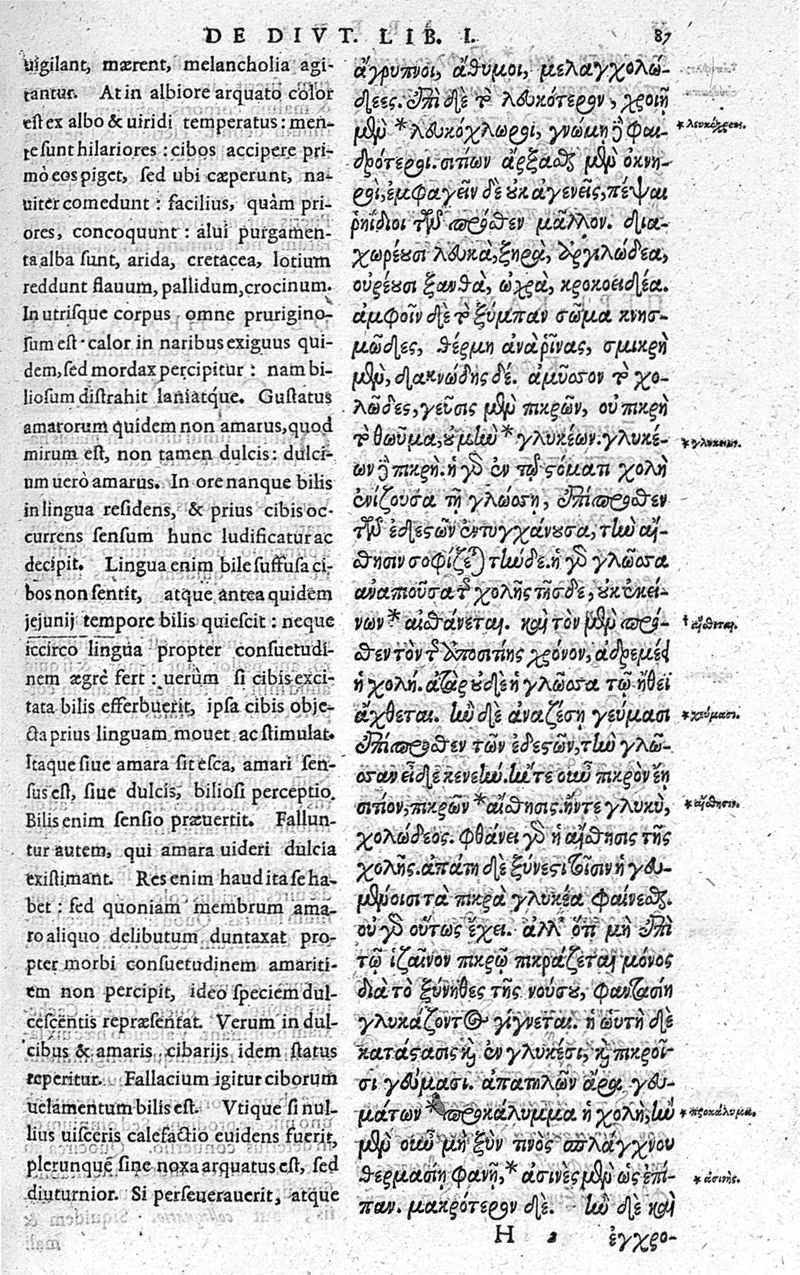 DE DIVT. LIB. I. 87
uigilant, mærent, melancholia agi-
tantur. At in albiore arquato color
est ex albo & uiridi temperatus: men-
te sunt hilariores: cibos accipere pri-
mò eos piget, sed ubi cæperunt, na-
uiter comedunt: facilius, quàm pri-
ores, concoquunt: alui purgamen-
ta alba sunt, arida, cretacea, lotium
reddunt flauum, pallidum, crocinum.
In utrisque corpus omne prurigino-
sum est· calor in naribus exiguus qui-
dem, sed mordax percipitur: nam bi-
liosum distrahit laniatque. Gustatus
amarorum quidem non amarus, quod
mirum est, non tamen dulcis: dulci-
um uerò amarus. In ore nanque bilis
in lingua residens, & prius cibis oc-
currens sensum hunc ludificatur ac
decipit. Lingua enim bile suffusa ci-
bos non sentit, atque antea quidem
jejunij tempore bilis quiescit: neque
iccirco lingua propter consuetudi-
nem ægrè fert: uerùm si cibis exci-
tata bilis efferbuerit, ipsa cibis obje-
cta prius linguam mouet ac stimulat.
Itaque siue amara sit esca, amari sen-
sus est, siue dulcis, biliosi perceptio.
Bilis enim sensio præuertit. Fallun-
tur autem, qui amara uideri dulcia
existimant. Res enim haud ita se ha-
bet: sed quoniam membrum ama-
ro aliquo delibutum duntaxat pro-
pter morbi consuetudinem amariti-
em non percipit, ideo speciem dul-
cescentis repræsentat. Verum in dul-
cibus & amaris cibarijs idem status
reperitur. Fallacium igitur ciborum
uelamentum bilis est. Vtique si nul-
lius uisceris calefactio euidens fuerit,
plerunque sine noxa arquatus est, sed
diuturnior. Si perseuerauerit, atque
ἀγρυπνοι, ἀθυμοι, μελαγχολώ-
δεες. ἐπὶ δὲ τὸ λευκότερον, χροιῇ
μὲν *λευκόχλωροι, γνώμῃ δὲ φαι-
δρότεροι. σιτίων ἄρξασθαι μὲν ὀκνη-
ροὶ, ἐμφαγεῖν δὲ οὐκ ἀγενεῖς, πέψαι
ῥηΐδιοι τῶν πρόσθεν μᾶλλον. δια-
χωρέουσι λευκὰ, ξηρὰ, ἀργιλώδεα,
οὐρέουσι ξανθὰ, ὠχρὰ, κροκοειδέα.
ἀμφοῖν δὲ τὸ ξύμπαν σῶμα κνησ-
μῶδες, θέρμη ἀνὰ ῥῖνας, σμικρὴ
μὲν, δακνώδης δέ. ἀμύσσον τὸ χο-
λῶδες, γεῦσις μὲν πικρῶν, οὐ πικρὴ
τὸ θωῦμα, οὐ μὴν *γλυκέων. γλυκέ-
ων δὲ πικρή. ἡ γὰρ ἐν τῷ στόματι χολὴ
ἐνίζουσα τῇ γλώσσῃ, ἐπίπροσθεν
τῶν ἐδεστῶν ἐντυγχάνουσα, τὴν αἴ-
σθησιν σοφίζεται τήνδε. ἡ γὰρ γλῶσσα
ἀναπιοῦσα τὸ χολῆς τῆσδε, οὐκ ἐκεί-
νων *αἰσθάνεται. καὶ τὸν μὲν πρό-
σθεν τὸν τῆς ἀποσιτίης χρόνον, ἀδρεμέει
ἡ χολή. ἀτὰρ οὐδὲ ἡ γλῶσσα τῷ ἤθεϊ
ἄχθεται. ἢν δὲ ἀναζέσῃ γεύμασι
ἐπίπροσθεν τῶν ἐδεστῶν, τὴν γλῶσ-
σαν εἶδε κενεήν. ἤν τε οὖν πικρὸν ἔῃ
σιτίον, πικρῶν *αἴσθησις. ἤν τε γλυκὺ,
χολώδεος. φθάνει γὰρ ἡ αἴσθησις τῆς
χολῆς. ἀπάτη δὲ ξύνεστι τοῖσιν ἡ γευ-
μένοισι τὰ πικρὰ γλυκέα φαίνεσθαι.
οὐ γὰρ οὕτως ἔχει. ἀλλ' ὅτι μὴ ἐπὶ
τῷ ἰζαῖνον πικρῷ πικράζεται μόνος
διὰ τὸ ξύνηθες τῆς νούσου, φαντασίη
γλυκάζοντος γίγνεται. ἡ ὡυτὴ δὲ
κατάστασις καὶ ἐν γλυκέσι, καὶ πικροῖ-
σι γεύμασι. ἀπατηλῶν ἄρα γευ-
μάτων *προκάλυμμα ἡ χολή, ἢν
μὲν οὖν μὴ ξὺν τινὸς σπλάγχνου
θερμασίῃ φανῇ, *ἀσινὲς μὲν ὡς ἐπί-
παν. μακρότερον δέ. ἢν δὲ καὶ
*λευκόχροοι.
*αἴσθησις.
*προκάλυμα.
*ἀσινής.
H 2 ἐγχρο-